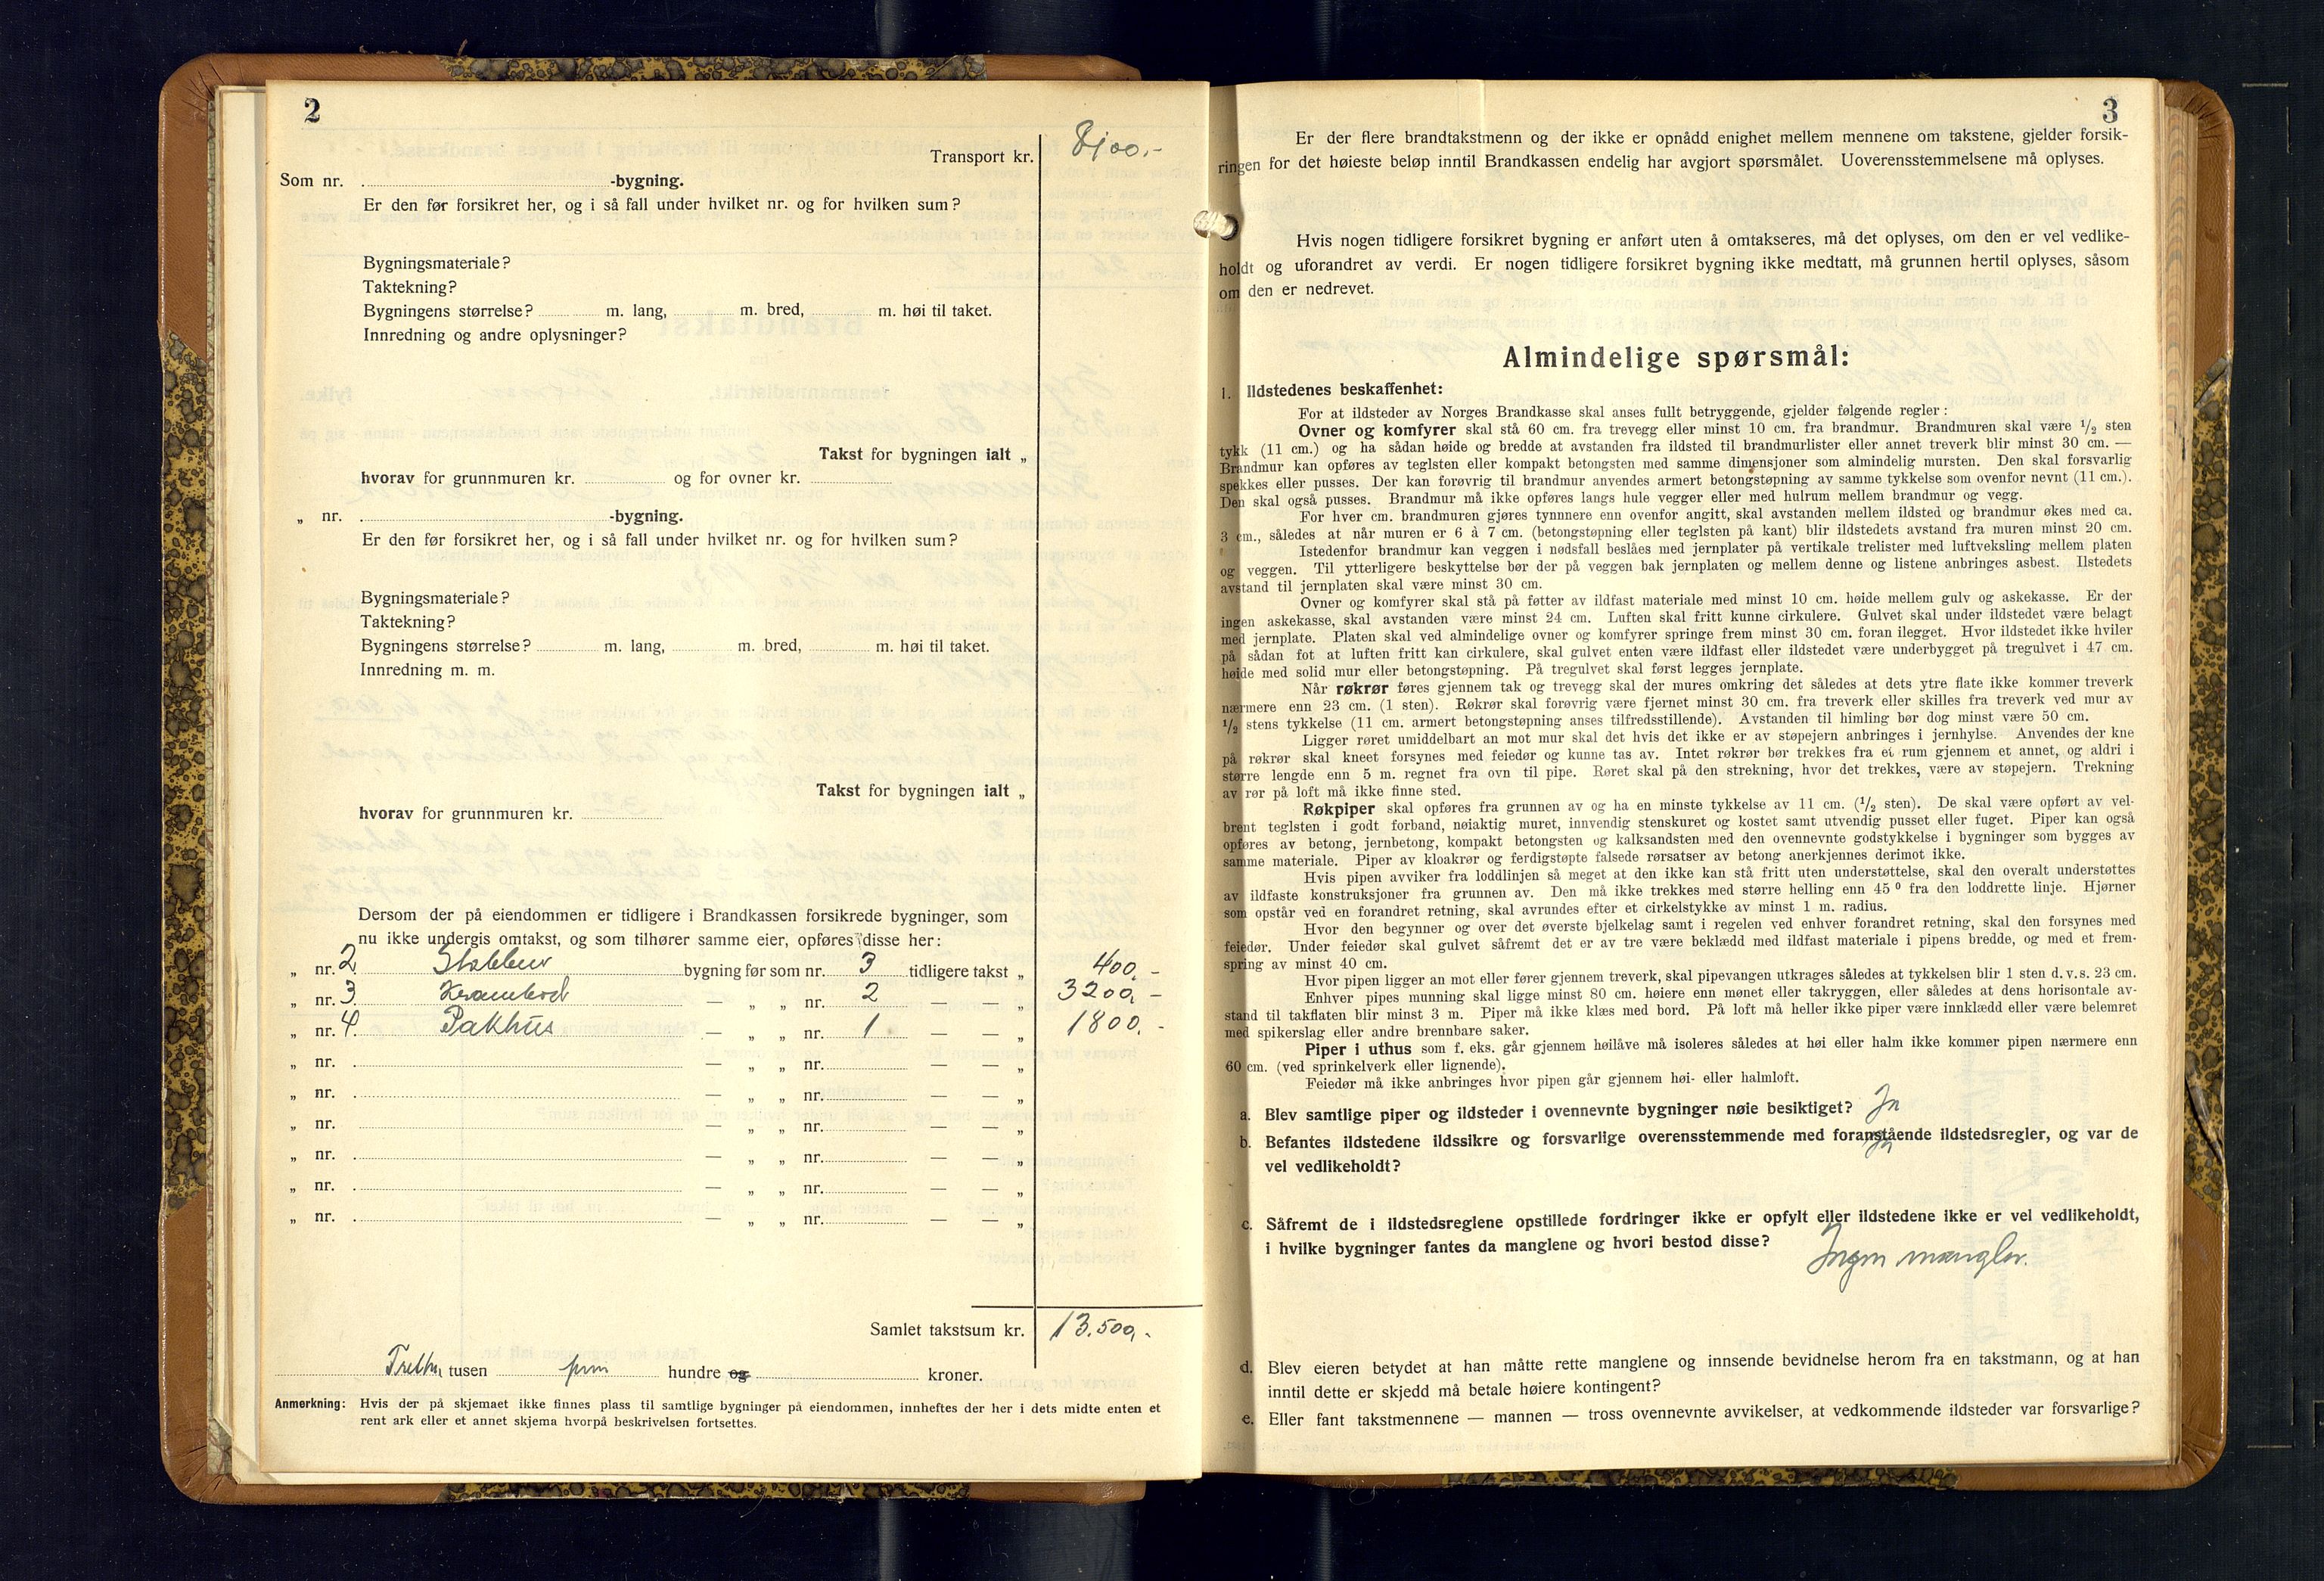 2
Transport kr. 8100.-
Som nr. -bygning.
Er den før forsikret her, og i så fall under hvilket nr. og for hvilken sum?
Bygningsmateriale?
Taktekning?
Bygningens størrelse? m. lang, m. bred, m. høi til taket.
Innredning og andre oplysninger?
Takst for bygningen ialt „
hvorav for grunnmuren kr. og for ovner kr.
„ nr. -bygning.
Er den før forsikret her, og i så fall under hvilket nr. og for hvilken sum?
Bygningsmateriale?
Taktekning?
Bygningens størrelse? m. lang, m. bred, m. høi til taket.
Innredning m. m.
Takst for bygningen ialt „
hvorav for grunnmuren kr.
Dersom der på eiendommen er tidligere i Brandkassen forsikrede bygninger, som
nu ikke undergis omtakst, og som tilhører samme eier, opføres disse her:
„ nr. 2 Stabbur bygning før som nr. 3 tidligere takst „ 400,-
„ nr. 3 Krambod — „ „ nr. 2 — — „ 3200,-
„ nr. 4. Pakhus — „ „ nr. 1 — — „ 1800.-
„ nr. — „ „ nr. — — „
„ nr. — „ „ nr. — — „
„ nr. — „ „ nr. — — „
„ nr. — „ „ nr. — — „
„ nr. — „ „ nr. — — „
„ nr. — „ „ nr. — — „
Samlet takstsum kr. 13.500,-
Tretten tusen fem hundre og kroner.
Anmerkning: Hvis der på skjemaet ikke finnes plass til samtlige bygninger på eiendommen, innheftes der her i dets midte enten et
rent ark eller et annet skjema hvorpå beskrivelsen fortsettes.
3
Er der flere brandtakstmenn og der ikke er opnådd enighet mellem mennene om takstene, gjelder forsik-
ringen for det høieste beløp inntil Brandkassen endelig har avgjort spørsmålet. Uoverensstemmelsene må oplyses.
Hvis nogen tidligere forsikret bygning er anført uten å omtakseres, må det oplyses, om den er vel vedlike-
holdt og uforandret av verdi. Er nogen tidligere forsikret bygning ikke medtatt, må grunnen hertil oplyses, såsom
om den er nedrevet.
Almindelige spørsmål:
1. Ildstedenes beskaffenhet:
For at ildsteder av Norges Brandkasse skal anses fullt betryggende, gjelder følgende regler:
Ovner og komfyrer skal stå 60 cm. fra trevegg eller minst 10 cm. fra brandmur. Brandmuren skal være 1/2 sten
tykk (11 cm.) og ha sådan høide og bredde at avstanden fra ildsted til brandmurlister eller annet treverk blir minst 30 cm. —
Brandmur kan opføres av teglsten eller kompakt betongsten med samme dimensjoner som almindelig mursten. Den skal forsvarlig
spekkes eller pusses. Der kan forøvrig til brandmur anvendes armert betongstøpning av samme tykkelse som ovenfor nevnt (11 cm.).
Den skal også pusses. Brandmur må ikke opføres langs hule vegger eller med hulrum mellem brandmur og vegg.
For hver cm. brandmuren gjøres tynnnere enn ovenfor angitt, skal avstanden mellem ildsted og brandmur økes med ca.
3 cm., således at når muren er 6 à 7 cm. (betongstøpning eller teglsten på kant) blir ildstedets avstand fra muren minst 20 cm.
Istedenfor brandmur kan veggen i nødsfall beslåes med jernplater på vertikale trelister med luftveksling mellem platen
og veggen. Til ytterligere beskyttelse bør der på veggen bak jernplaten og mellem denne og listene anbringes asbest. Ilstedets
avstand til jernplaten skal være minst 30 cm.
Ovner og komfyrer skal stå på føtter av ildfast materiale med minst 10 cm. høide mellem gulv og askekasse. Er der
ingen askekasse, skal avstanden være minst 24 cm. Luften skal fritt kunne cirkulere. Gulvet skal under ildstedet være belagt
med jernplate. Platen skal ved almindelige ovner og komfyrer springe frem minst 30 cm. foran ilegget. Hvor ildstedet ikke hviler
på sådan fot at luften fritt kan cirkulere, skal gulvet enten være ildfast eller ildstedet være underbygget på tregulvet i 47 cm.
høide med solid mur eller betongstøpning. På tregulvet skal først legges jernplate.
Når røkrør føres gjennem tak og trevegg skal der mures omkring det således at dets ytre flate ikke kommer treverk
nærmere enn 23 cm. (1 sten). Røkrør skal forøvrig være fjernet minst 30 cm. fra treverk eller skilles fra treverk ved mur av
1/2 stens tykkelse (11 cm. armert betongstøpning anses tilfredsstillende). Avstanden til himling bør dog minst være 50 cm.
Ligger røret umiddelbart an mot mur skal det hvis det ikke er av støpejern anbringes i jernhylse. Anvendes der kne
på røkrør skal kneet forsynes med feiedør og kunne tas av. Intet røkrør bør trekkes fra et rum gjennem et annet, og aldri i
større lengde enn 5 m. regnet fra ovn til pipe. Røret skal på den strekning, hvor det trekkes, være av støpejern. Trekning
av rør på loft må ikke finne sted.
Røkpiper skal opføres fra grunnen av og ha en minste tykkelse av 11 cm. (1/2 sten). De skal være opført av vel-
brent teglsten i godt forband, nøiaktig muret, innvendig stenskuret og kostet samt utvendig pusset eller fuget. Piper kan også
opføres av betong, jernbetong, kompakt betongsten og kalksandsten med den ovennevnte godstykkelse i bygninger som bygges av
samme materiale. Piper av kloakrør og ferdigstøpte falsede rørsatser av betong anerkjennes derimot ikke.
Hvis pipen avviker fra loddlinjen så meget at den ikke kan stå fritt uten understøttelse, skal den overalt understøttes
av ildfaste konstruksjoner fra grunnen av. Den må ikke trekkes med større helling enn 45 0 fra den loddrette linje. Hjørner
som opstår ved en forandret retning, skal avrundes efter et cirkelstykke av minst 1 m. radius.
Hvor den begynner og over det øverste bjelkelag samt i regelen ved enhver forandret retning, skal den forsynes med
feiedør. Under feiedør skal gulvet såfremt det er av tre være beklædd med ildfast materiale i pipens bredde, og med et frem-
spring av minst 40 cm.
Hvor pipen ligger an mot eller fører gjennem treverk, skal pipevangen utkrages således at tykkelsen blir 1 sten d. v. s. 23 cm.
Enhver pipes munning skal ligge minst 80 cm. høiere enn mønet eller takryggen, eller således at dens horisontale av-
stand til takflaten blir minst 3 m. Piper må ikke klæs med bord. På loft må heller ikke piper være innklædd eller være belemret
med spikerslag eller andre brennbare saker.
Piper i uthus som f. eks. går gjennem høilåve må isoleres således at høi eller halm ikke kommer pipen nærmere enn
60 cm. (ved sprinkelverk eller lignende).
Feiedør må ikke anbringes hvor pipen går gjennem høi- eller halmloft.
a. Blev samtlige piper og ildsteder i ovennevnte bygninger nøie besiktiget? Ja
b. Befantes ildstedene ildssikre og forsvarlige overensstemmende med foranstående ildstedsregler, og var de
vel vedlikeholdt? Ja
c. Såfremt de i ildstedsreglene opstillede fordringer ikke er opfylt eller ildstedene ikke er vel vedlikeholdt,
i hvilke bygninger fantes da manglene og hvori bestod disse? Ingen mangler.
d. Blev eieren betydet at han måtte rette manglene og innsende bevidnelse herom fra en takstmann, og at han
inntil dette er skjedd må betale høiere kontingent?
e. Eller fant takstmennene — mannen — tross ovennevnte avvikelser, at vedkommende ildsteder var forsvarlige?